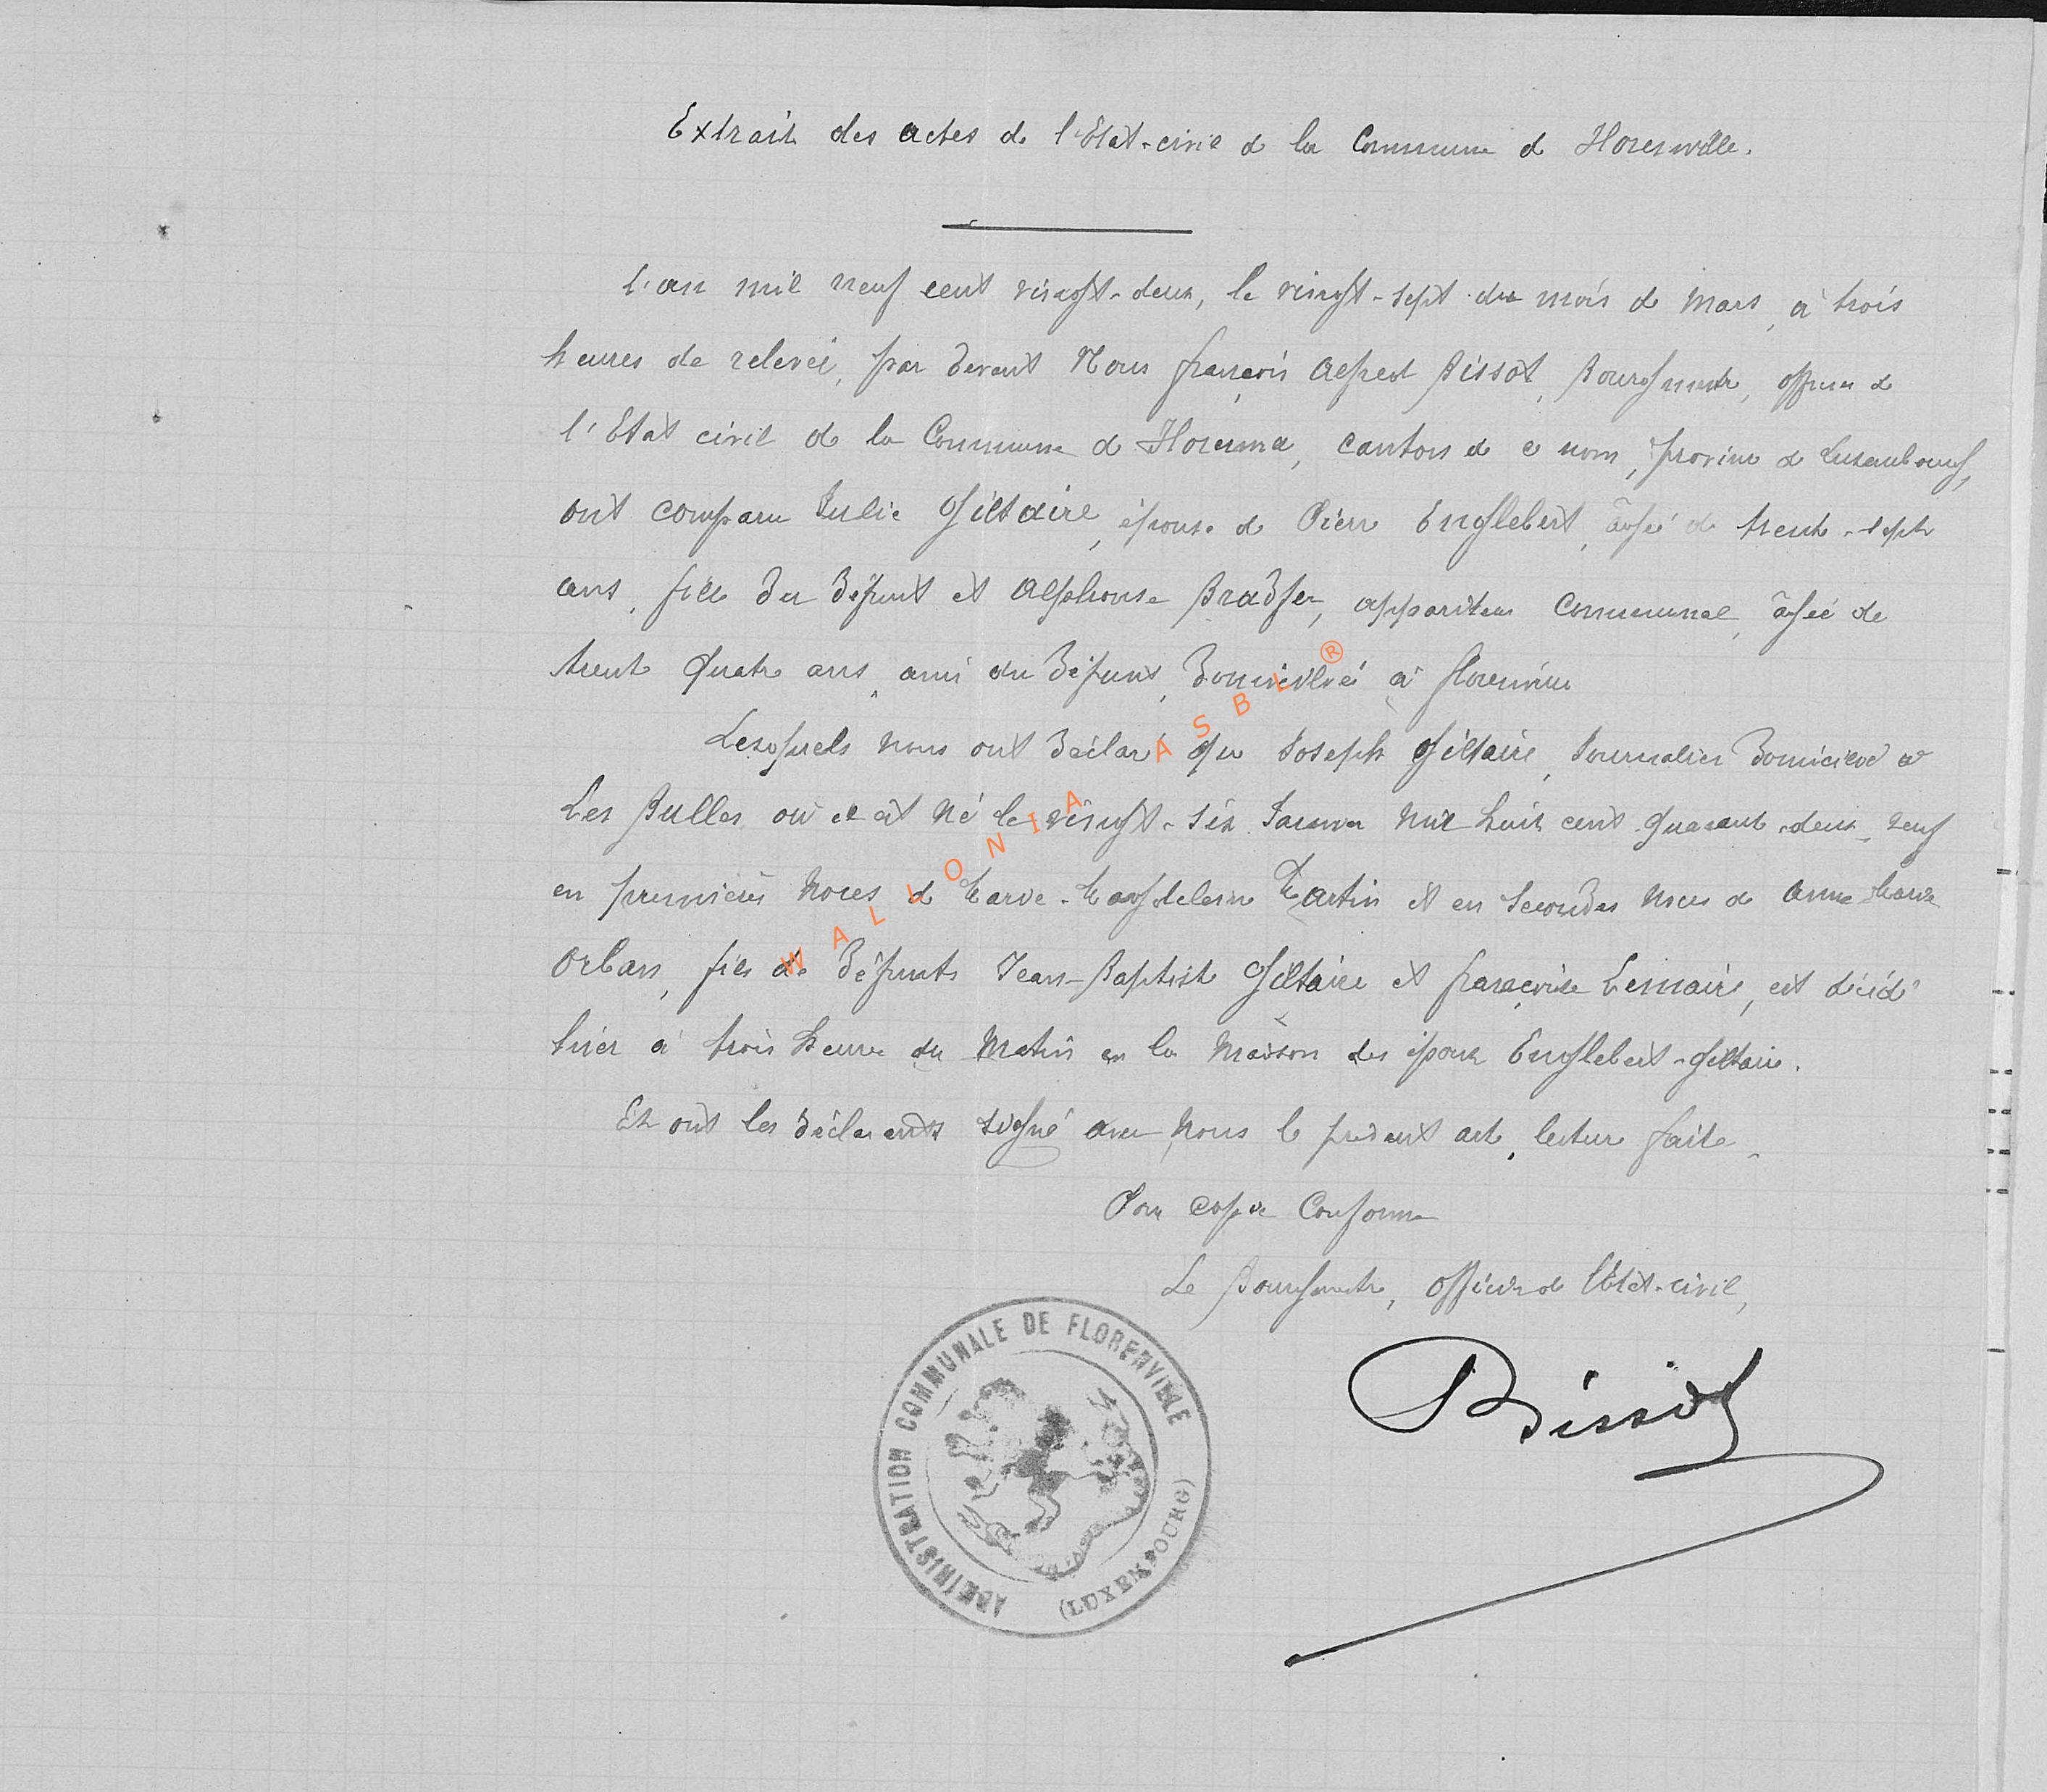 Extrait des actes de l'Etat-civil de la Commune de Florenville.
L'an mil neuf cent vingt-deux, le vingt-sept du mois de Mars, à trois
heures de relevée, par devant Nous François Alfred Bissot, Bourgmestre, officier de
l'Etat civil de la Commune de Florenville, canton de ce nom, province de Luxembourg,
ont comparu Julie Giltaire, épouse de Pierre Englebert, âgée de trente-sept
ans, fille du défunt et Alphonse Bradfer, appariteur Communal, âgé de
trente quatre ans, ami du défunt, Domiciliés à Florenville
Lesquels nous ont déclaré que Joseph Giltaire, Journalier Domicilié à
Les Bulles où il est né le vingt-six Janvier mil huit cent quarante-deux, veuf
en premières Noces de Marie-Magdeleine Martin et en secondes noces de Anne Marie
Orban, fils de défunts Jean-Baptiste Giltaire et Françoise Lemaire, est décédé
hier à trois heures du Matin en la Maison des époux Englebert-Giltaire.
Et ont les déclarants signé avec Nous le présent acte, lecture faite.
Pour copie Conforme
Le Bourgmestre, officier de l'Etat-civil,
Bissot
ADMINISTRATION COMMUNALE DE FLORENVILLE
(LUXEMBOURG)
WALLONIA ASBL ®